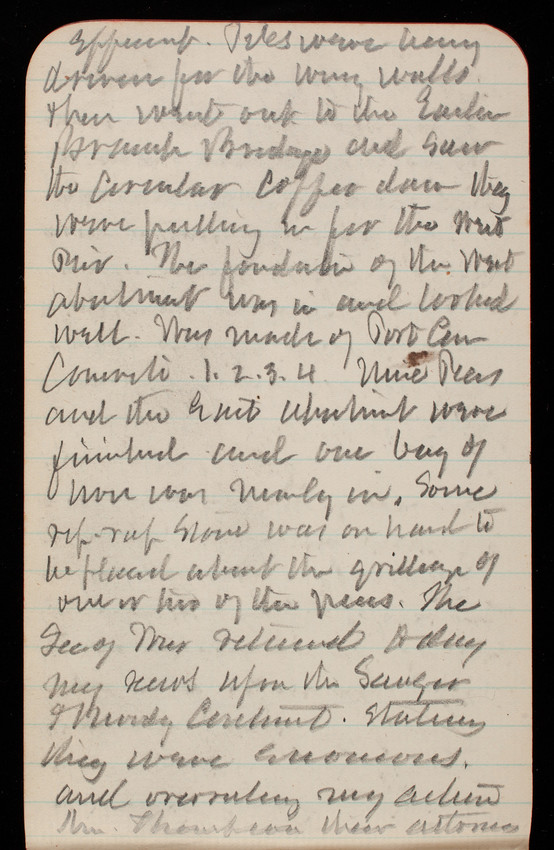 Piles were being
driven for the wing walls.
then went out to the
Branch Bridge and saw
the Circular Coffer dam they
were putting in for the West
Pier. The foundation of the West
abutment was in and looked
well. Was made of Port Cem
Concrete .1.2.3.4 Nine Piers
and the East abutment were
finished and one bay of
iron was nearly in. Some
rip-rap stone was on hand to
be placed about the grillage of
one or two of the piers. The
Sec of War returned today
my views upon the
Moody Contract. Stating
they were erroneous.
and overruling my action
Mr. Thompson their attorney